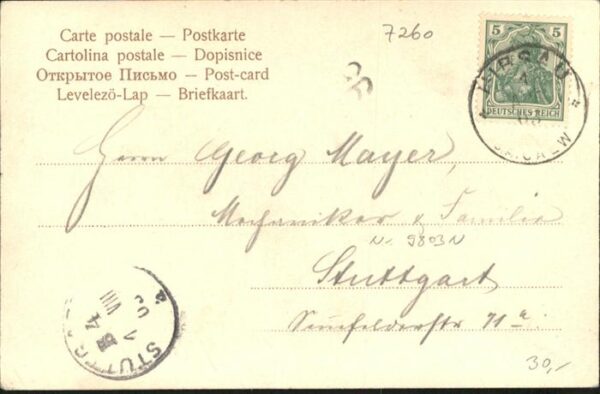 Carte postale — Postkarte
Cartolina postale — Dopisnice
Открытое Письмо — Post-card
Levelezö-Lap — Briefkaart.
7260
5 5
DEUTSCHES REICH
HIRSAU
Herrn Georg Mayer,
Mechaniker & Familie
N- 9803N
Stuttgart
71a.
STUTTG
VIII
30,-